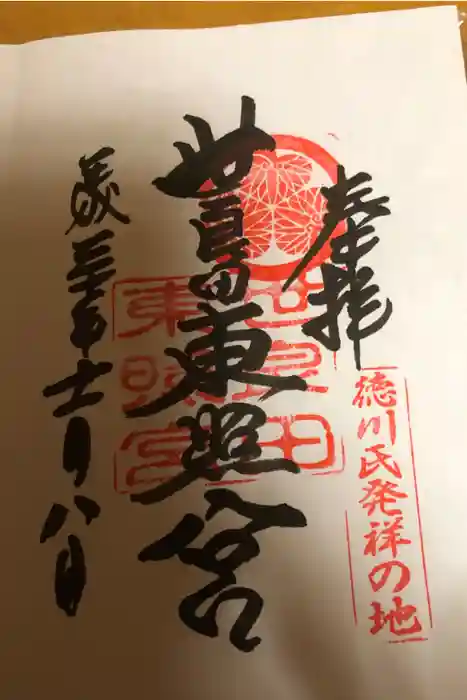 奉拝
徳川氏発祥の地
世良田東照宮
世良田
東照宮
平成三十年十一月八日